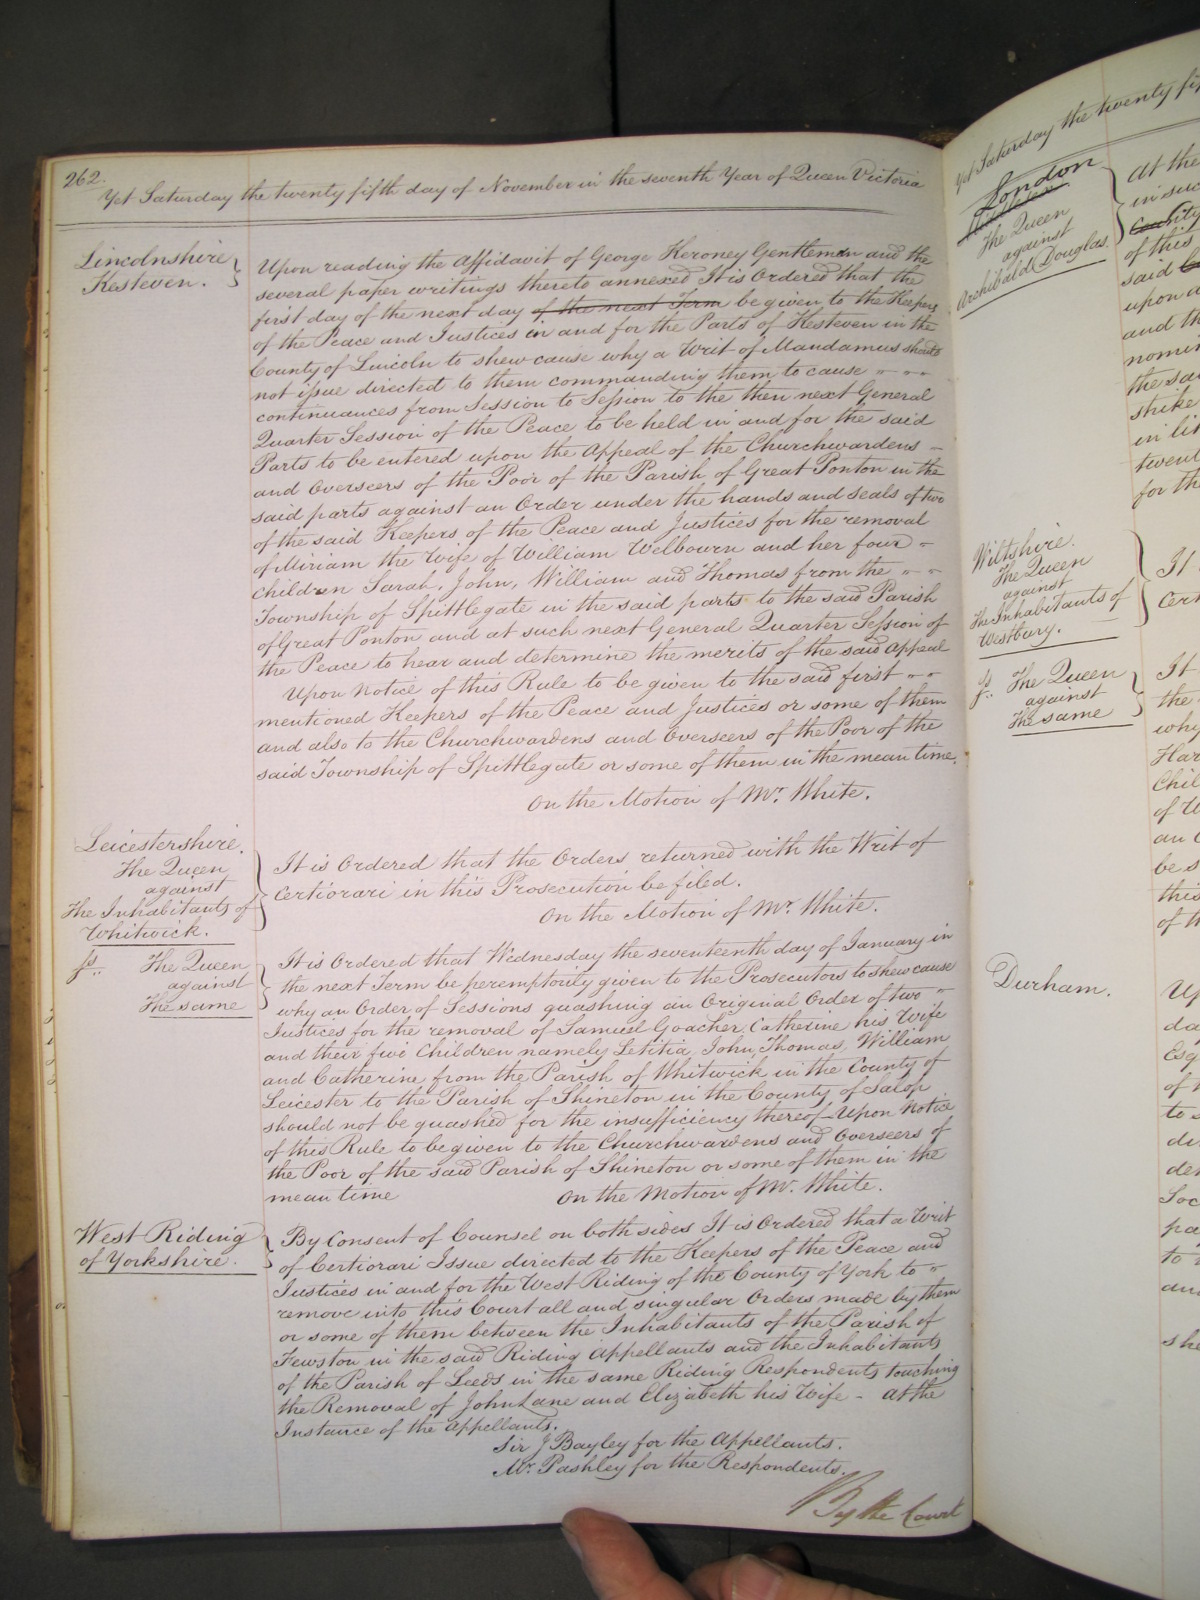 262.
Yet Saturday the twenty fifth day of November in the seventh Year of Queen Victoria
Lincolnshire
Kesteven.
Upon reading the Affidavit of George Keroney Gentleman and the
several paper writings thereto annexed It is Ordered that the
first day of the next day of the next Term be given to the Keepers
of the Peace and Justices in and for the Parts of Kesteven in the
County of Lincoln to shew cause why a Writ of Mandamus should
not issue directed to them commanding them to cause
continuances from Session to Session to the then next General
Quarter Session of the Peace to be held in and for the said
Parts to be entered upon the Appeal of the Churchwardens
and Overseers of the Poor of the Parish of Great Ponton in the
said parts against an Order under the hands and seals of two
of the said Keepers of the Peace and Justices for the removal
of Miriam the Wife of William Welbourn and her four
children Sarah, John, William and Thomas from the
Township of Spittlegate in the said parts to the said Parish
of Great Ponton and at such next General Quarter Session of
the Peace to hear and determine the merits of the said Appeal
Upon Notice of this Rule to be given to the said first
mentioned Keepers of the Peace and Justices or some of them
and also to the Churchwardens and Overseers of the Poor of the
said Township of Spittlegate or some of them in the mean time.
On the Motion of Mr. White.
Leicestershire.
The Queen
against
The Inhabitants of
Whitwick.
It is Ordered that the Orders returned with the Writ of
Certiorari in this Prosecution be filed.
On the Motion of Mr. White.
The Queen
against
The same
It is Ordered that Wednesday the seventeenth day of January in
the next Term be peremptorily given to the Prosecutors to shew cause
why an Order of Sessions quashing an Original Order of two
Justices for the removal of Samuel Goacher, Catherine his Wife
and their five Children namely Letitia, John, Thomas, William
and Catherine from the Parish of Whitwick in the County of
Leicester to the Parish of Shineton in the County of Salop
should not be quashed for the insufficiency thereof Upon Notice
of this Rule to be given to the Churchwardens and Overseers of
the Poor of the said Parish of Shineton or some of them in the
mean time
On the Motion of Mr. White.
West Riding
of Yorkshire.
By Consent of Counsel on both sides It is Ordered that a Writ
of Certiorari Issue directed to the Keepers of the Peace and
Justices in and for the West Riding of the County of York to
remove into this Court all and singular Orders made by them
or some of them between the Inhabitants of the Parish of
Fewston in the said Riding Appellants and the Inhabitants
of the Parish of Leeds in the same Riding Respondents touching
the Removal of John Lane and Elizabeth his Wife - At the
Instance of the Appellants.
Sir J Bayley for the Appellants.
Mr. Pashley for the Respondents.
By the Court
Yet Saturday the twenty
London
The Queen
against
Archibald Douglas.
At the
of this
said
upon
and the
the said
strike
for the
Wiltshire.
The Queen
against
The Inhabitants of
Westbury.
It
The Queen
against
The same
It
the
why
be
this
of
Durham.